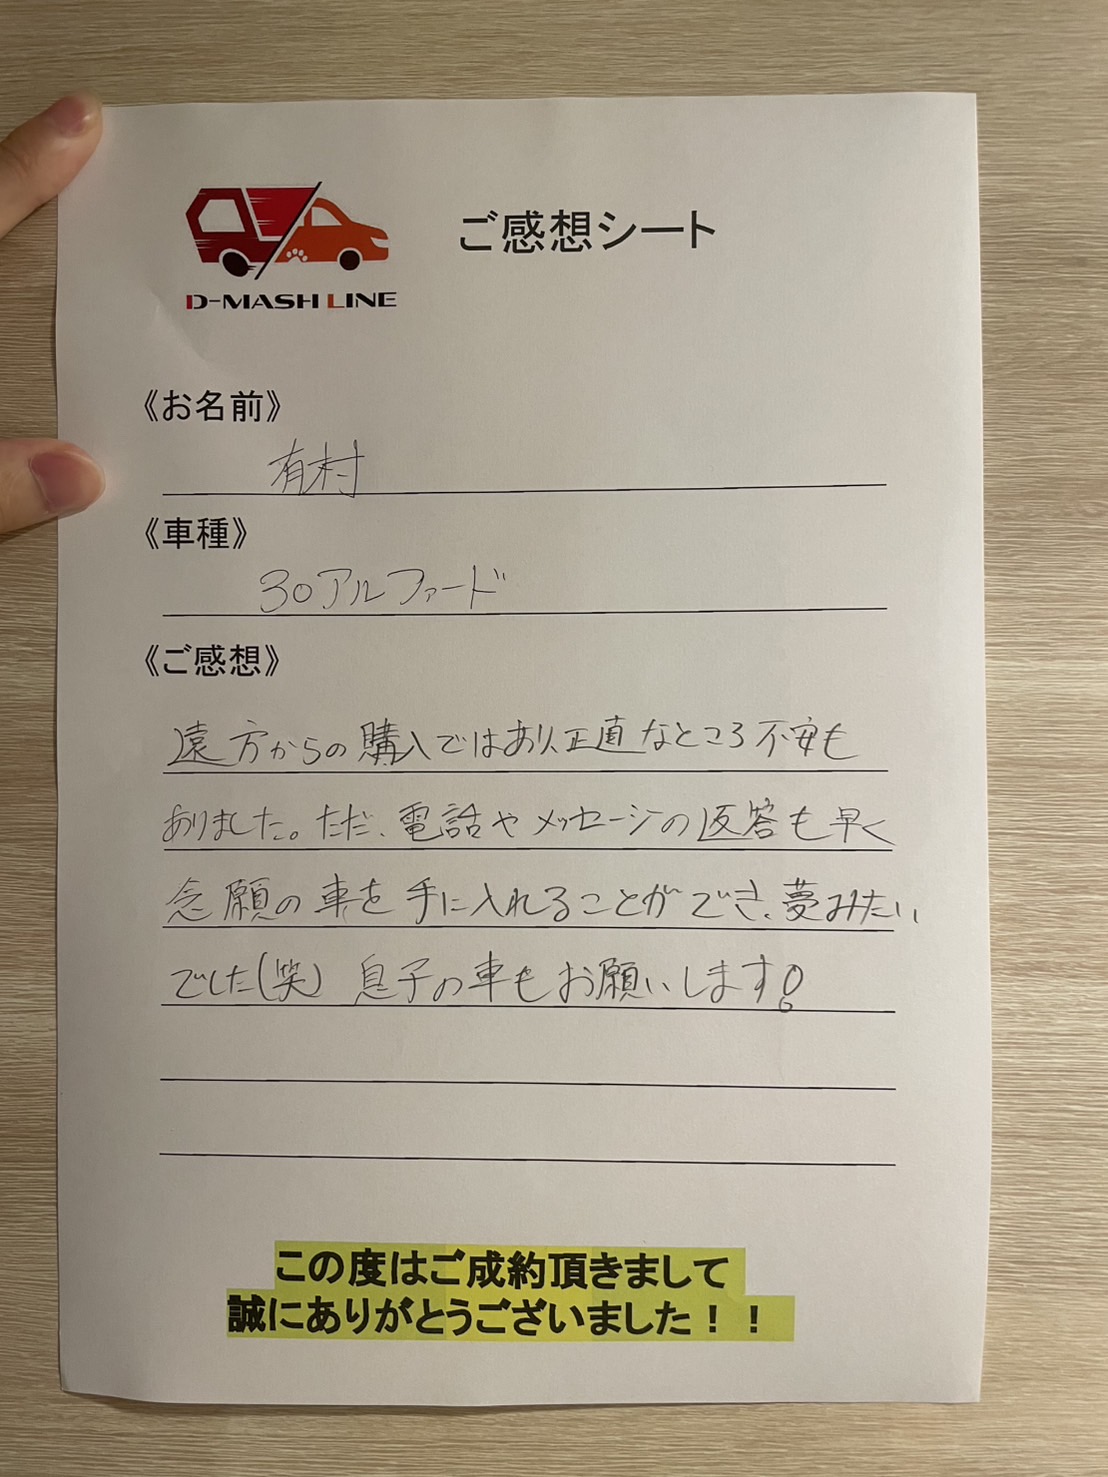 ご感想シート
D-MASH LINE
《お名前》
有村
《車種》
30アルファード
《ご感想》
遠方からの購入ではあり、正直なところ不安も
ありました。ただ、電話やメッセージの返答も早く
念願の車を手に入れることができ、夢みたい
でした(笑) 息子の車もお願いします!
この度はご成約頂きまして
誠にありがとうございました！！